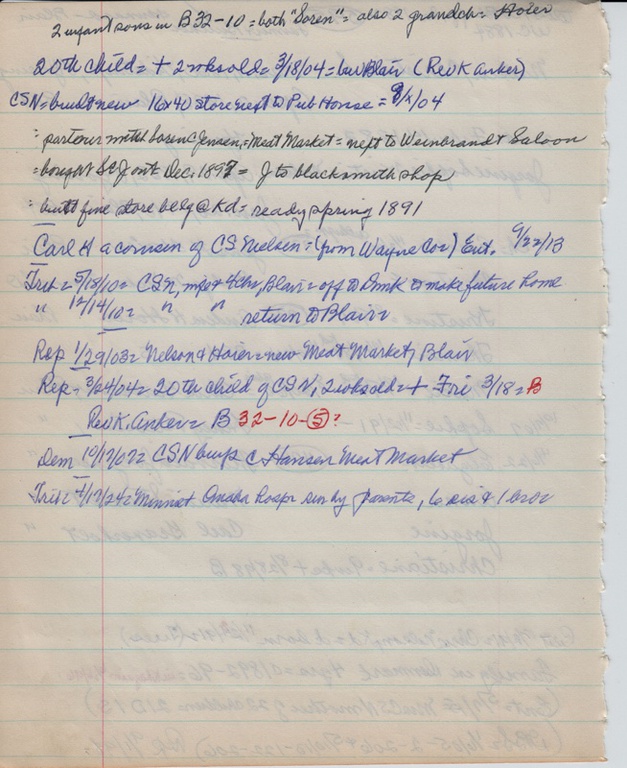 2 infant sons in B32-10 = both "Soren" = also 2 grandch =
20th child = + 2 wks old = 3/18/04 = bur Blair (Rev K. Anker)
CSN = build + new 16x40 store next to Pub House = 9/x/04
= partour with Jensen, = Meat Market = next to Weinbrandt Saloon
= bought Dec. 1897 = J to blacksmith shop
= built fine store belg @ Kd = ready spring 1891
Carl H a cousin of CS Nielsen = (from Wayne Co =) Ent. 9/22/13
Trib = 5/18/10 = CSN, wife + Blair = off to Dmk to make future home
" 12/14/10 = " " return to Blair =
Rep 1/29/03 = Nelson + Haier = new Meat Market, Blair
Rep = 3/24/04 = 20th child of CSN, 2 wks old = + Fri 3/18 = B
Rev K. Anker = B 32-10-5?
Dem 10/17/07 = CSN buys C. Hansen Meat Market
Trib = 4/17/24 = Minnie + Omaha Hosp = surv by parents, 6 sis + 1 bro =